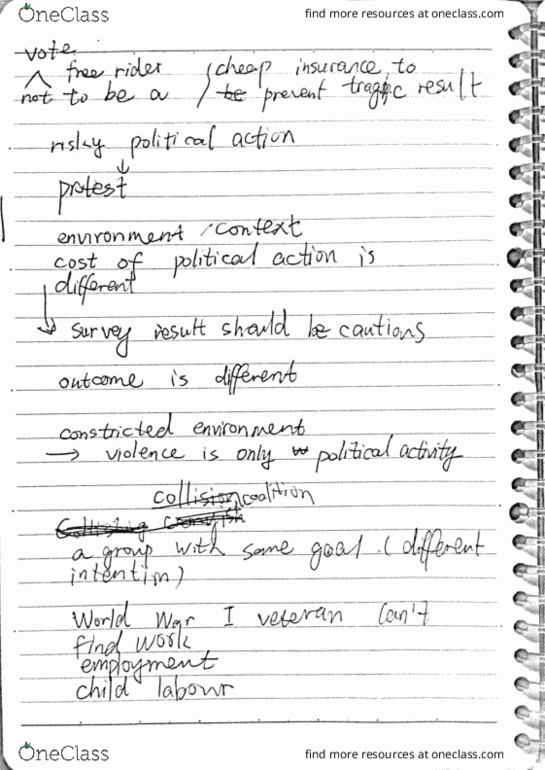 OneClass find more resources at oneclass.com
vote
free rider cheap insurance, to
not to be a be prevent traggic result
risky political action
protest
environment / context
cost of political action is
different
survey result should be cautions
outcome is different
constricted environment
→ violence is only political activity
collision, coalition
a group with same goal. (different
intention)
World War I veteran Can't
find work
employment
child labour
OneClass find more resources at oneclass.com